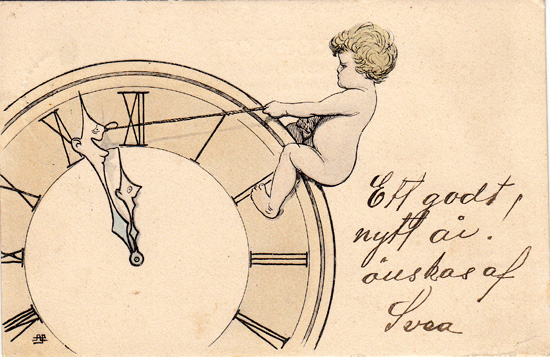 XII
Ett godt,
nytt år.
önskas af
Svea